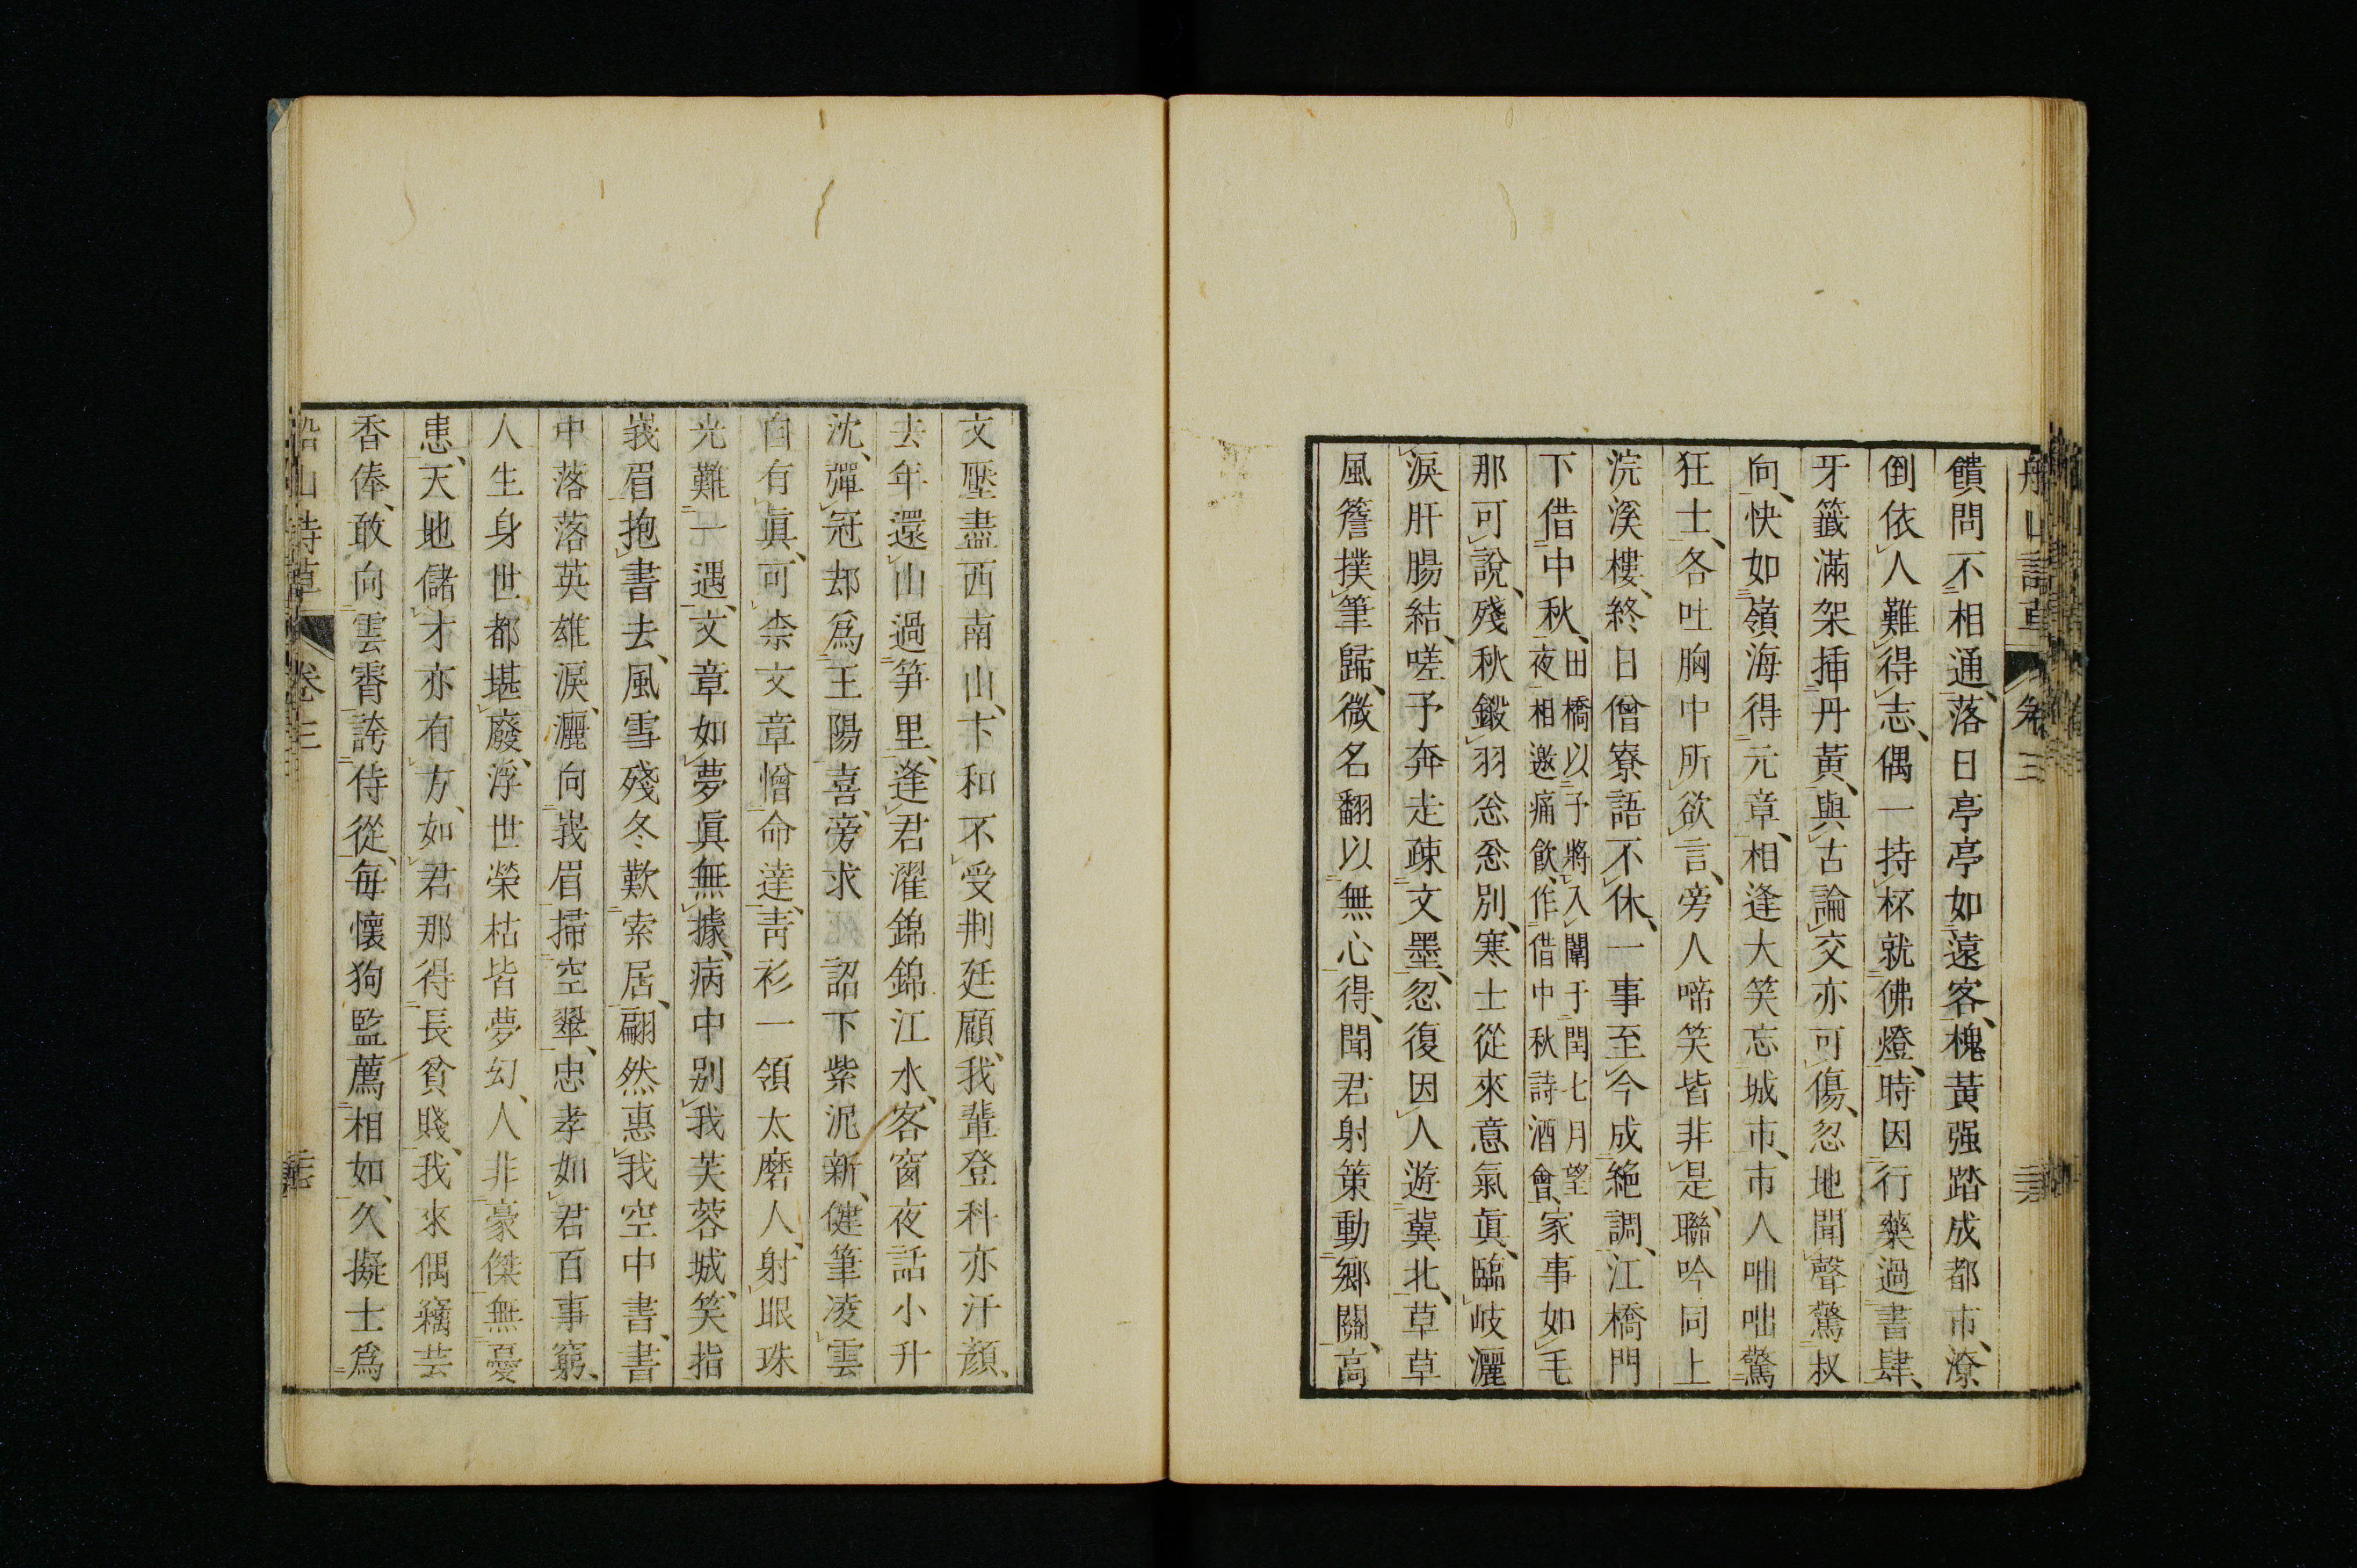 船山詩草 卷三
饋問不相通落日亭亭如遠客槐黃强踏成都市潦
倒依人難得志偶一持杯就佛燈時因行藥過書肆
牙籤滿架插丹黃與古論交亦可傷忽地聞聲驚叔
向快如嶺海得元章相逢大笑忘城市市人呫咄驚
狂士各吐胸中所欲言旁人啼笑皆非是聯吟同上
浣溪樓終日僧寮語不休一事至今成絶調江橋門
下借中秋田橋以予將入闈于閏七月望夜相邀痛飮作借中秋詩酒會家事如毛
那可說殘秋鎩羽怱怱別寒士從來意氣眞臨岐灑
淚肝腸結嗟予奔走疎文墨忽復因人遊冀北草草
風簷撲筆歸微名翻以無心得聞君射策動鄉關高
文壓盡西南山卞和不受荆廷顧我輩登科亦汗顔
去年還山過笋里逢君濯錦錦江水客窗夜話小升
沈彈冠却爲王陽喜旁求詔下紫泥新健筆凌雲
自有眞可柰文章憎命達靑衫一領太磨人射眼珠
光難一遇文章如夢眞無據病中别我芙蓉城笑指
峩眉抱書去風雪殘冬歎索居翩然惠我空中書書
中落落英雄淚灑向峩眉掃空翠忠孝如君百事窮
人生身世都堪廢浮世榮枯皆夢幻人非豪傑無憂
患天地儲才亦有方如君那得長貧賤我來偶竊芸
香俸敢向雲霄誇侍從每懷狗監薦相如久擬士爲
船山詩草 卷三